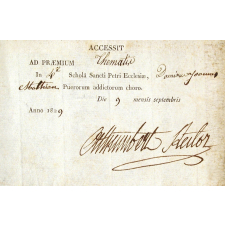 ACCESSIT
AD PRÆMIUM Thematis
In 4ª Scholâ Sancti Petri Ecclesiæ,
Mathieu Puerorum addictorum choro.
Die 9 mensis septembris
Anno 1829